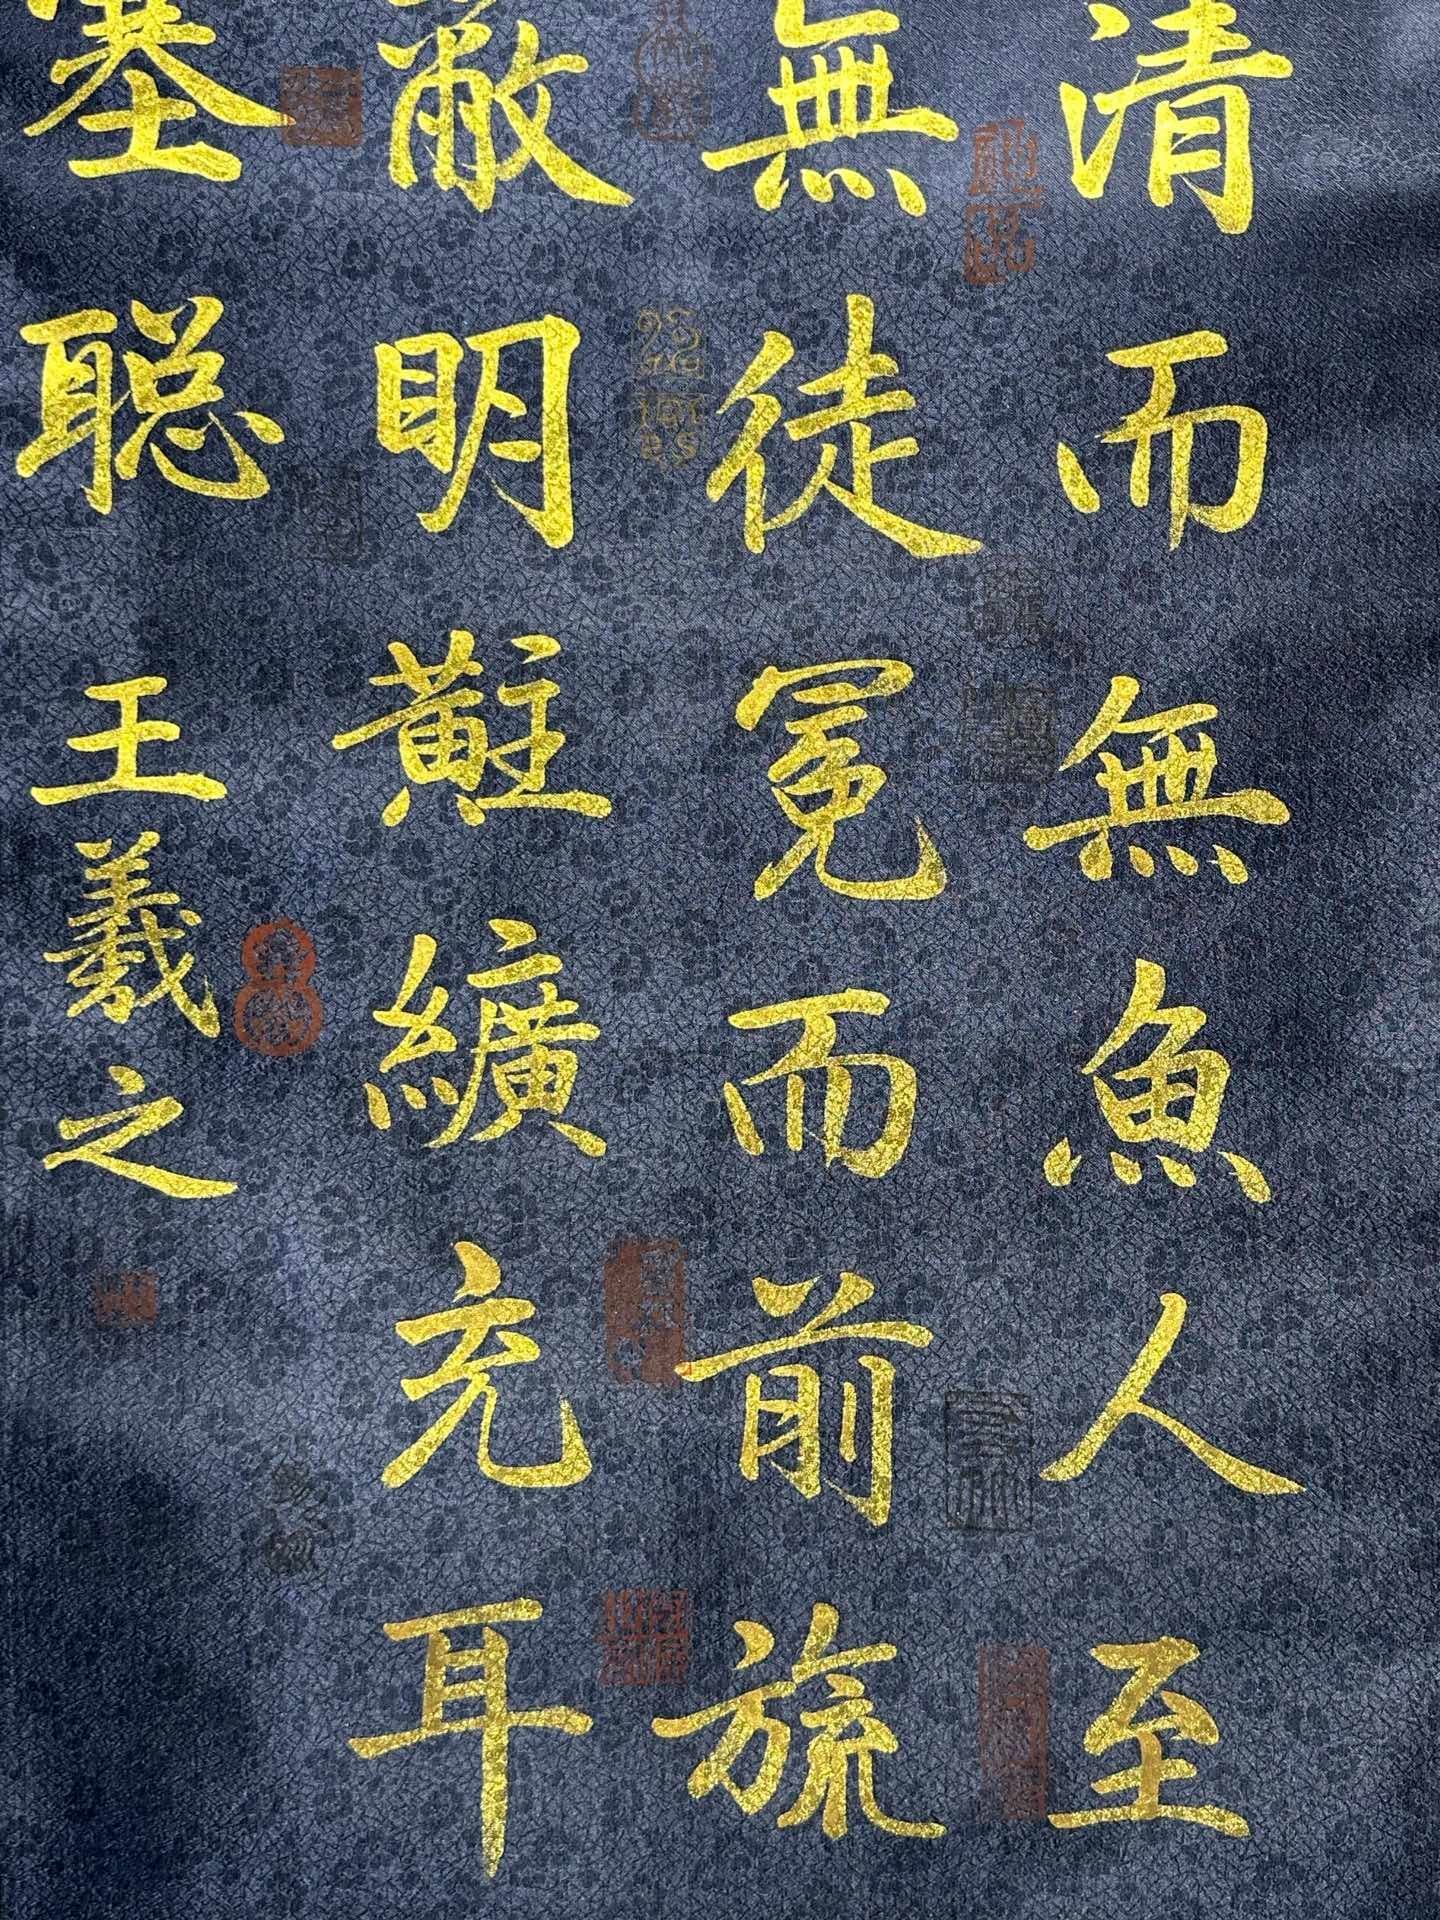 清而無魚人至
無徒冕而前旒
蔽明黈纊充耳
塞聪
王羲之